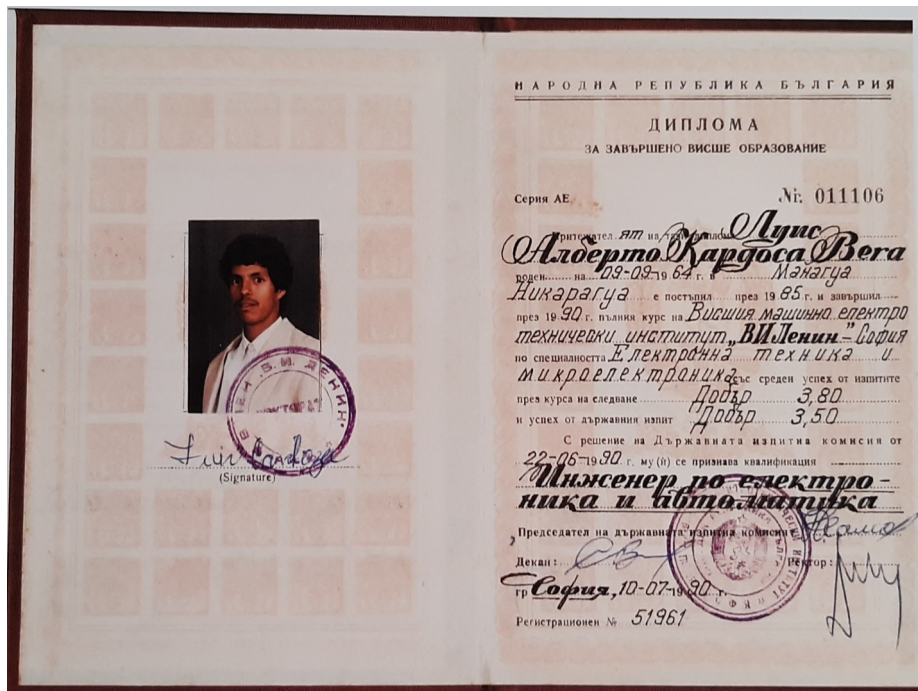 Luis Cardoza
(Signature)
НАРОДНА РЕПУБЛИКА БЪЛГАРИЯ
ДИПЛОМА
ЗА ЗАВЪРШЕНО ВИСШЕ ОБРАЗОВАНИЕ
Серия АЕ № 011106
Притежателят на тази диплома Луис
Алберто Кардоса Вега
роден на 09-09-1964 г. в Манагуа
Никарагуа е постъпил през 1985 г. и завършил
през 1990 г. пълния курс на Висшия машинно електро
технически институт „ВИ Ленин"- София
по специалността Електронна техника и
микроелектроника със среден успех от изпитите
през курса на следване Добър 3,80
и успех от държавния изпит Добър 3,50
С решение на Държавната изпитна комисия от
22-06-1990 г. му (ѝ) се признава квалификация
Инженер по електро-
ника и автоматика
Председател на държавната изпитна комисия
Декан: Ректор:
гр София, 10-07-1990 г.
Регистрационен № 51961